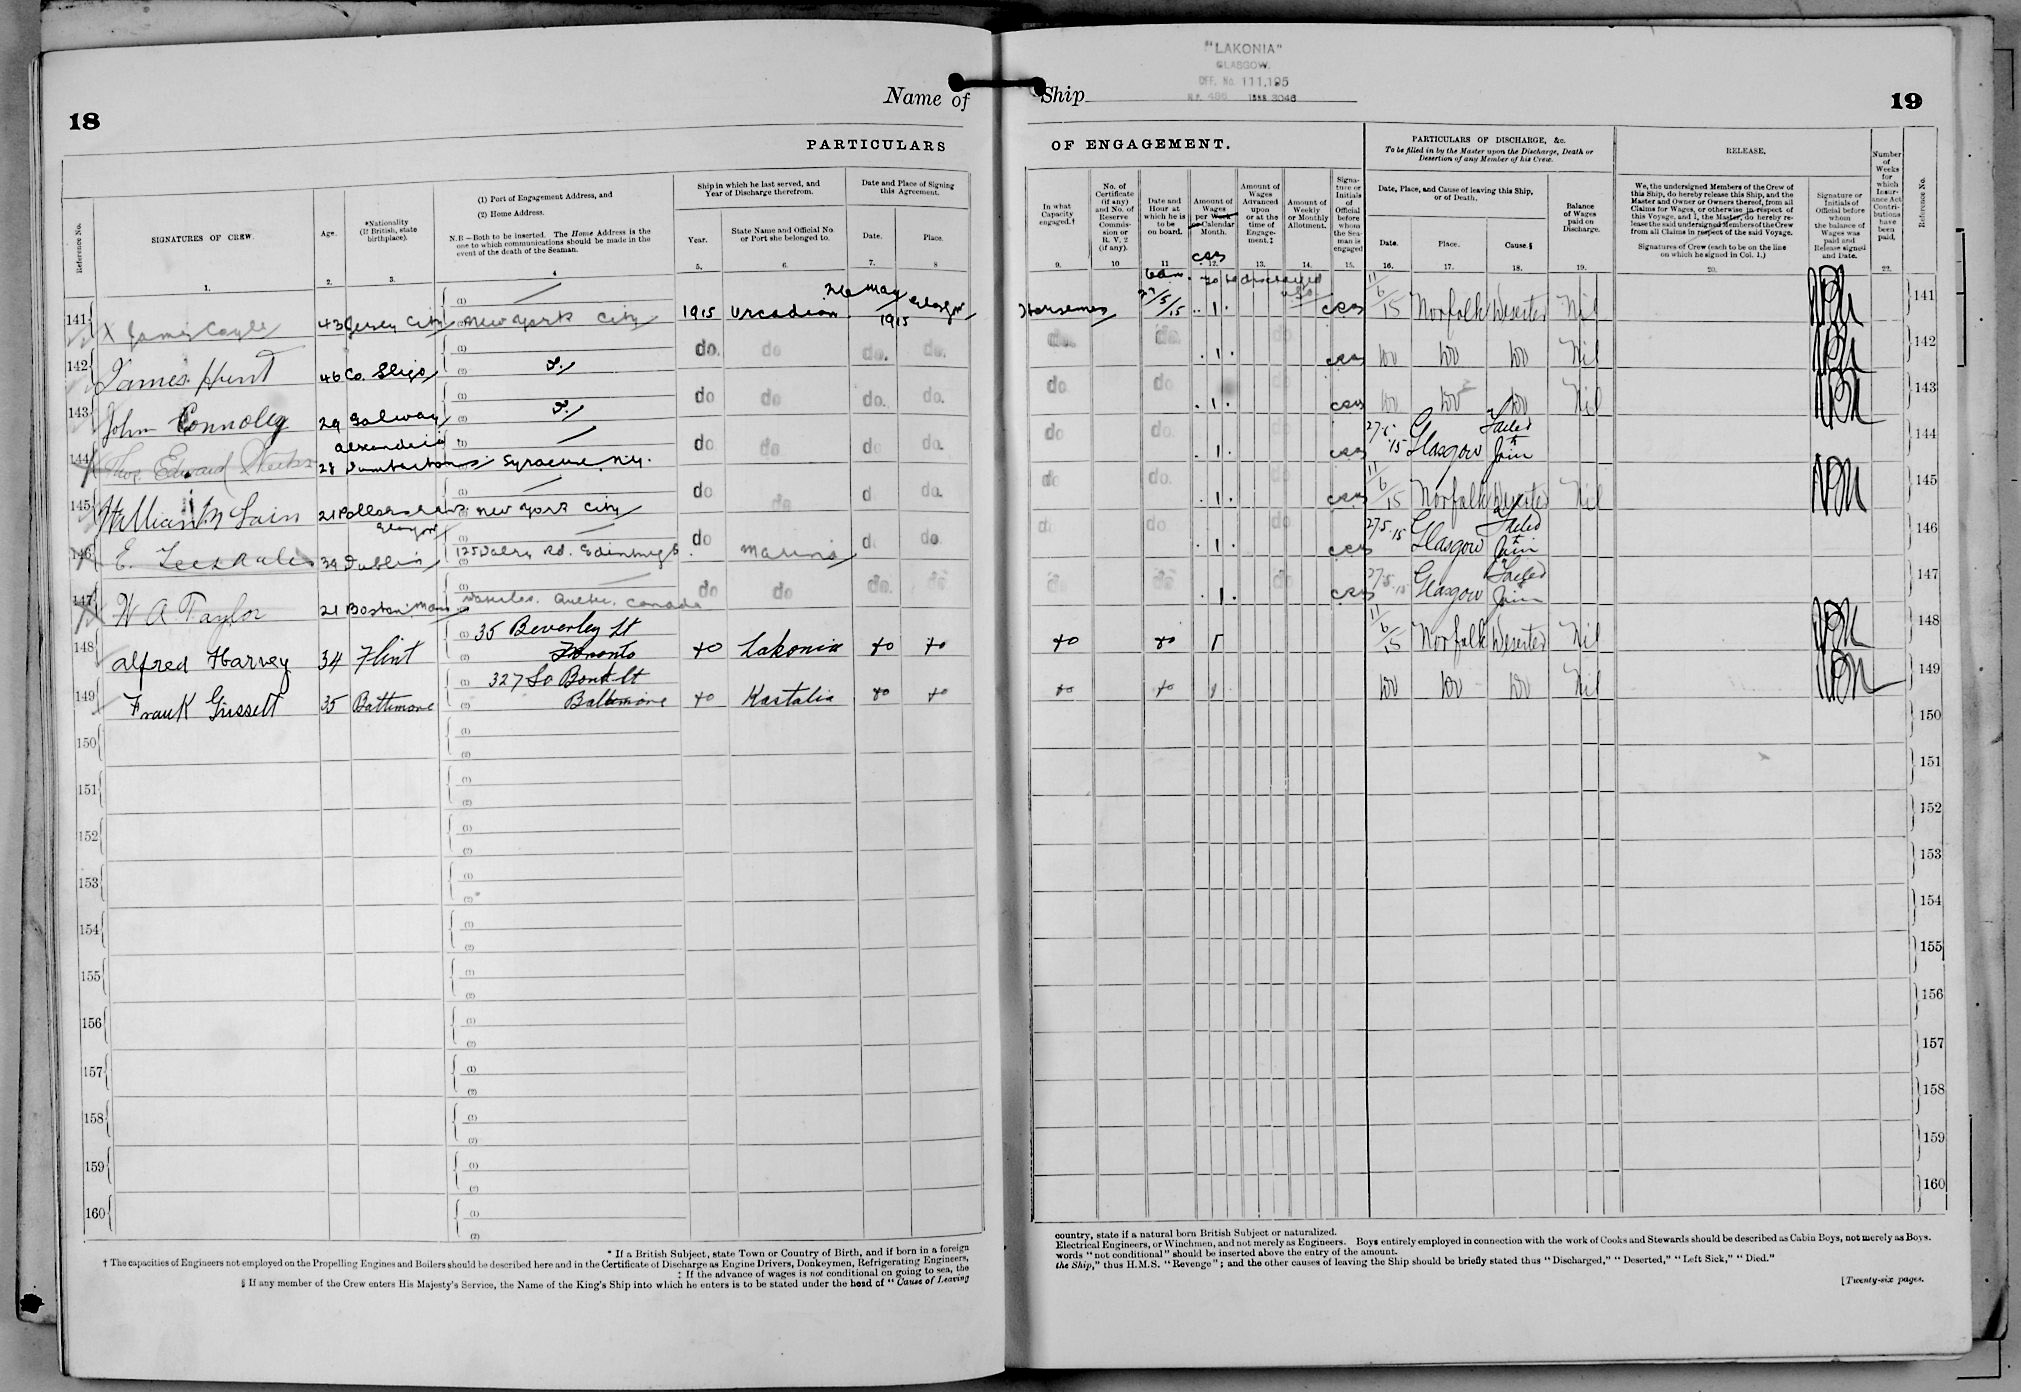 18
Name of
PARTICULARS
Reference No.
SIGNATURES OF CREW.
1.
Age.
2.
*Nationality
(If British, state
birthplace).
3.
(1) Port of Engagement Address, and
(2) Home Address.
N.B—Both to be inserted. The Home Address is the
one to which communications should be made in the
event of the death of the Seaman.
4
Ship in which he last served, and
Year of Discharge therefrom.
Year.
5.
State Name and Official No.
or Port she belonged to.
6.
Date and Place of Signing
this Agreement.
Date.
7.
Place.
8
141 X James Coyle 43 Jersey City New York City 1915 Orcadian 26 May 1915 Glasgow
142 James Hunt 46 Co. Sligo do. do do. do.
143 John Connolly 29 Galway do do do. do.
144 Thos. Edward 28 Alexandria Dumbarton Syracuse N.Y. do do do do.
145 William 21 Glasgow New York City do do d do.
146 E. 39 Dublin 125 Dalry Rd. Edinburgh do Marina d do.
147 W A Taylor 21 Boston Mass Quebec. Canada do do do. do
148 Alfred Harvey 34 Flint 35 Beverley St Toronto do Lakonia do do
149 Frank Grissett 35 Baltimore 327 So Bond St Baltimore do Kastalia do do
150
151
152
153
154
155
156
157
158
159
160
* If a British Subject, state Town or Country of Birth, and if born in a foreign
† The capacities of Engineers not employed on the Propelling Engines and Boilers should be described here and in the Certificate of Discharge as Engine Drivers, Donkeymen, Refrigerating Engineers,
‡ If the advance of wages is not conditional on going to sea, the
§ If any member of the Crew enters His Majesty's Service, the Name of the King's Ship into which he enters is to be stated under the head of "Cause of Leaving
"LAKONIA"
GLASGOW.
OFF. No. 111,195
Ship
19
OF ENGAGEMENT.
PARTICULARS OF DISCHARGE, &c.
To be filled in by the Master upon the Discharge, Death or
Desertion of any Member of his Crew.
RELEASE.
In what
Capacity
engaged.†
9.
No. of
Certificate
(if any)
and No. of
Reserve
Commis-
sion or
R. V. 2
(if any).
10
Date and
Hour at
which he is
to be
on board.
11
Amount of
Wages
per Week
or Calendar
Month.
12.
Amount of
Wages
Advanced
upon
or at the
time of
Engage-
ment.‡
13.
Amount of
Weekly
or Monthly
Allotment.
14.
Signa-
ture or
Initials
of
Official
before
whom
the Sea-
man is
engaged
15.
Date, Place, and Cause of leaving this Ship,
or of Death.
Date.
16.
Place.
17.
Cause.§
18.
Balance
of Wages
paid on
Discharge.
19.
We, the undersigned Members of the Crew of
this Ship, do hereby release this Ship, and the
Master and Owner or Owners thereof, from all
Claims for Wages, or otherwise in respect of
this Voyage, and I, the Master, do hereby re-
lease the said undersigned Members of the Crew
from all Claims in respect of the said Voyage.
Signatures of Crew (each to be on the line
on which he signed in Col. 1.)
20.
Signature or
Initials of
Official before
whom
the balance of
Wages was
paid and
Release signed
and Date.
Number
of
Weeks
for
which
Insur-
ance Act
Contri-
butions
have
been
paid.
22.
Reference No.
6 am to be discharged USA
Horseman 27/5/15 1 11/6/15 Norfolk Deserted Nil 141
do. do. 1 do do do do Nil 142
do do 1 do do do Nil 143
do do. 1 27.5.15 Glasgow Failed to Join 144
do do. 1 11/6/15 Norfolk Deserted Nil 145
d do 1 do 27.5.15 Glasgow Failed to Join 146
do do 1 do 27.5.15 Glasgow Failed to Join 147
do do 1 11/6/15 Norfolk Deserted Nil 148
do do 1 do do do Nil 149
150
151
152
153
154
155
156
157
158
159
160
country, state if a natural born British Subject or naturalized.
Electrical Engineers, or Winchmen, and not merely as Engineers. Boys entirely employed in connection with the work of Cooks and Stewards should be described as Cabin Boys, not merely as Boys.
words "not conditional" should be inserted above the entry of the amount.
the Ship," thus H.M.S. "Revenge"; and the other causes of leaving the Ship should be briefly stated thus "Discharged," "Deserted," "Left Sick," "Died."
[Twenty-six pages.